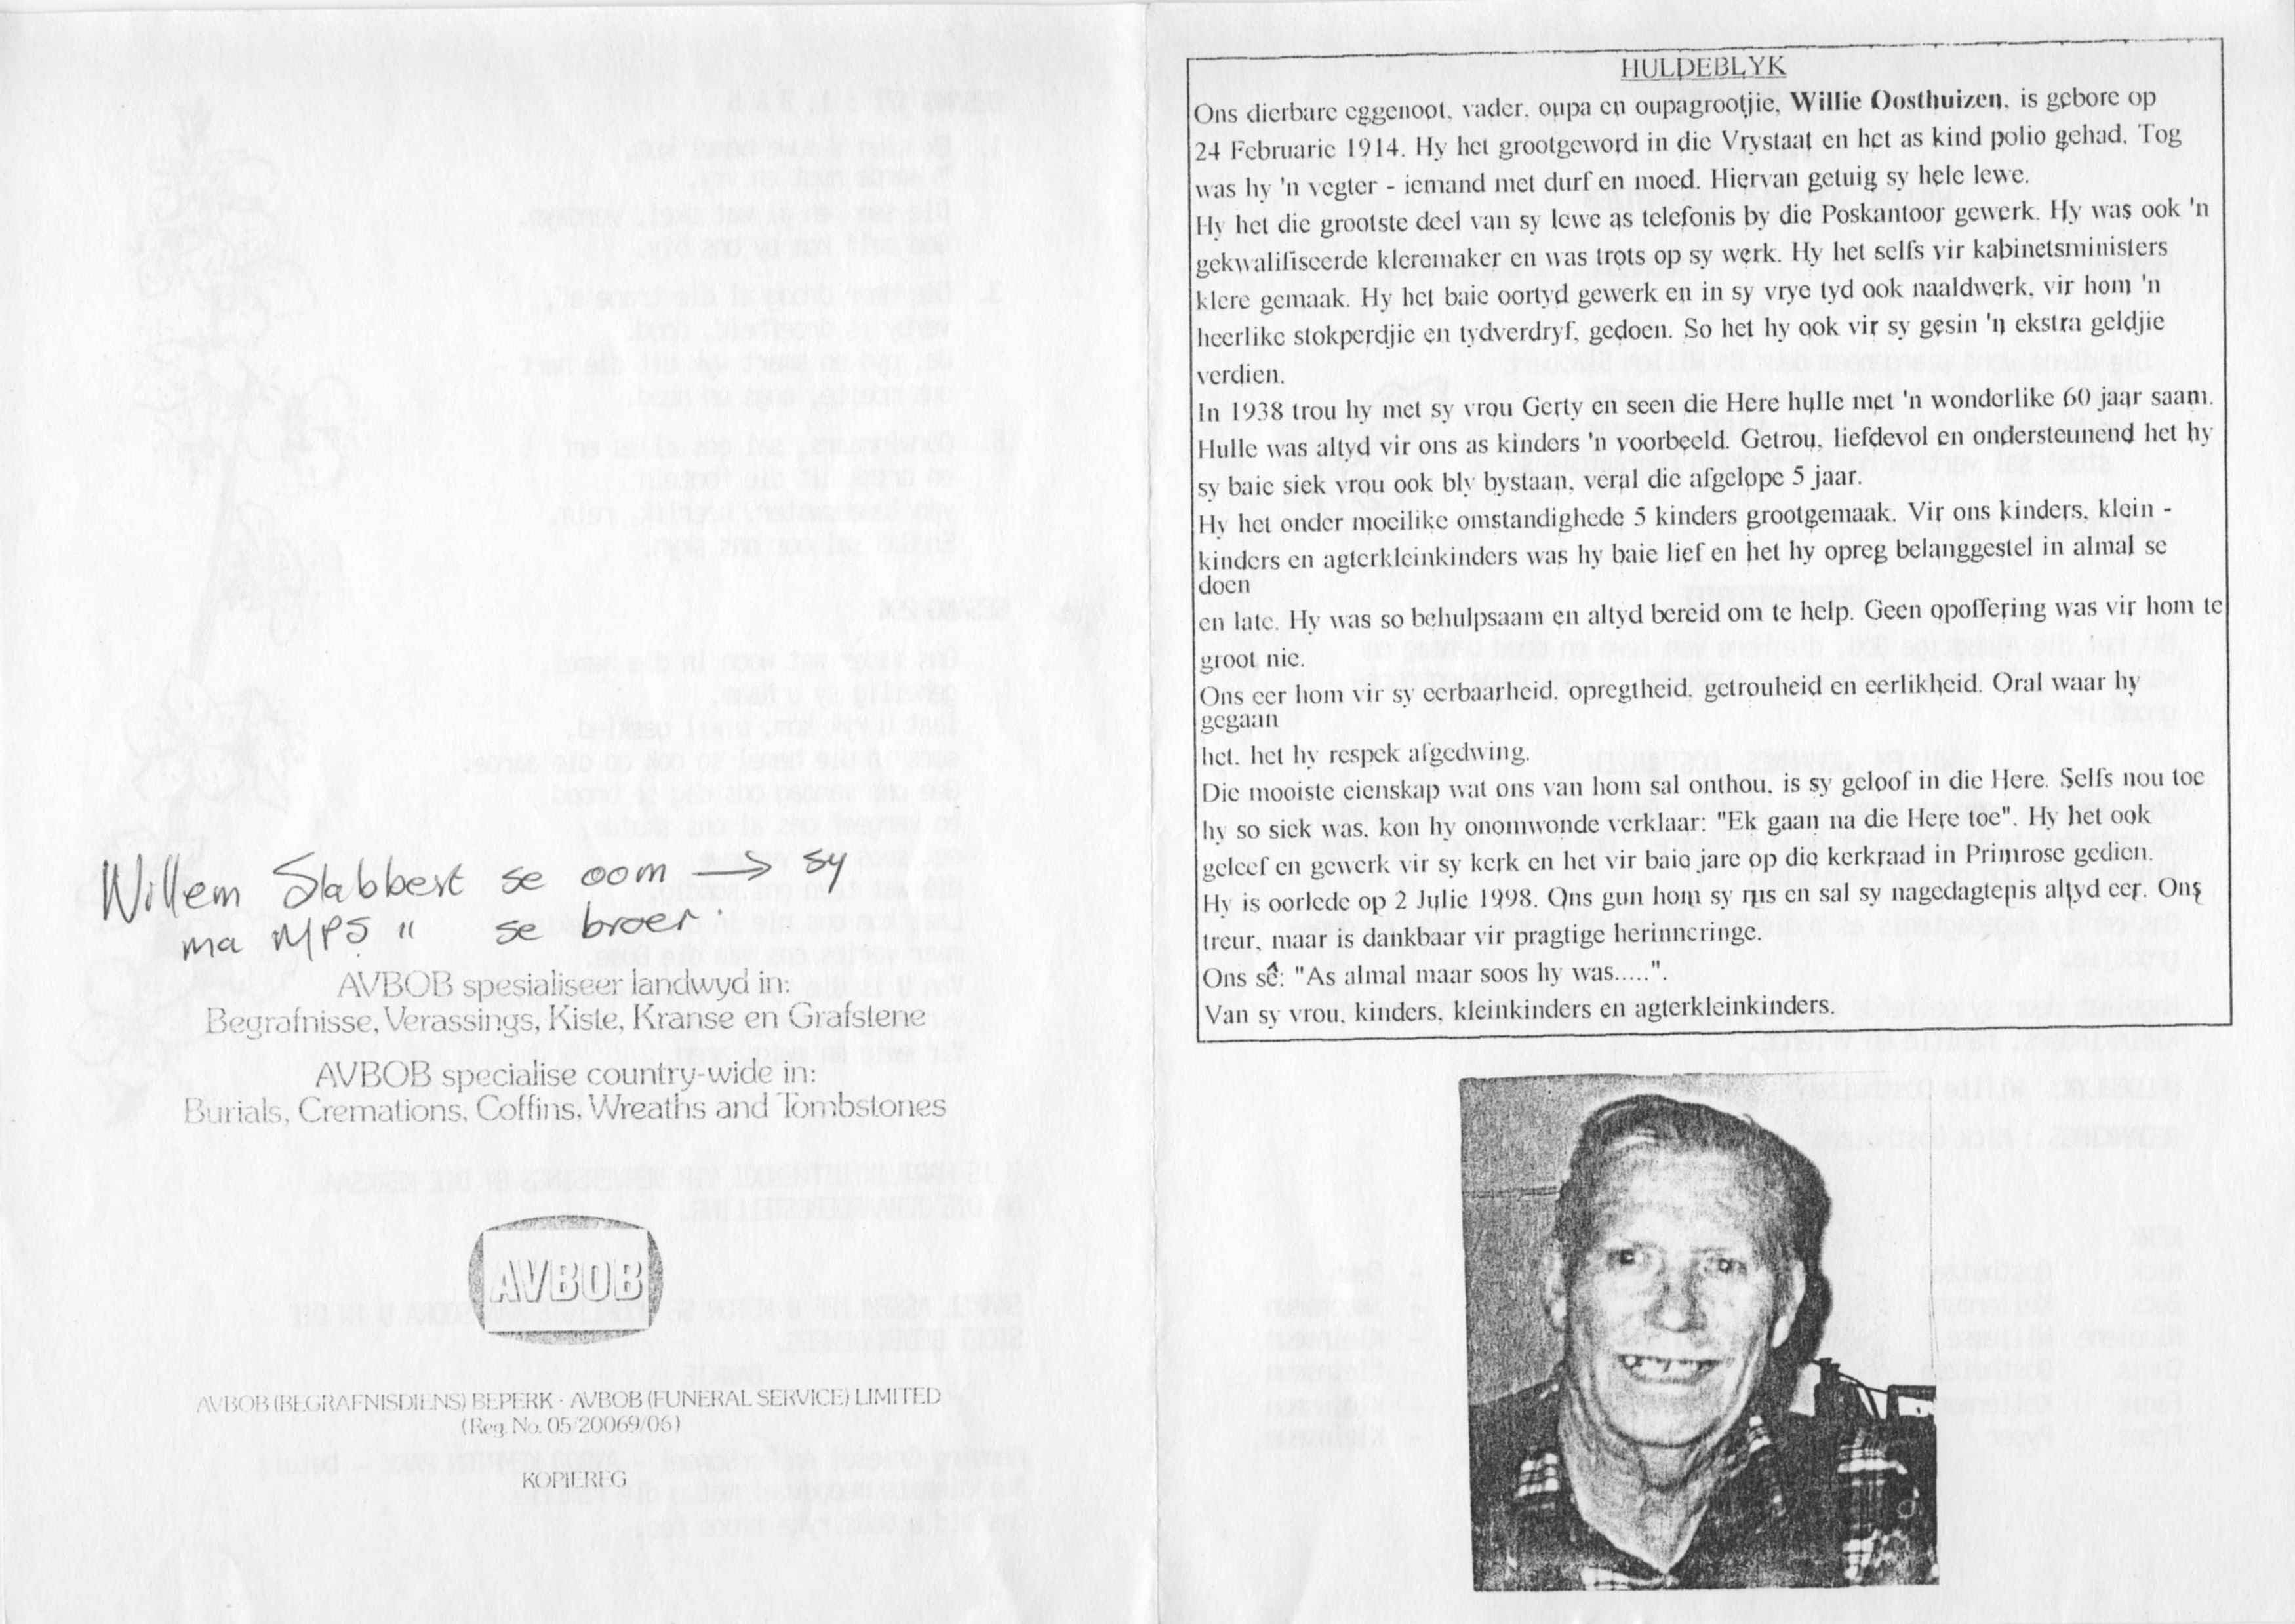 Willem Slabbert se oom → sy
ma MPS " se broer.
AVBOB spesialiseer landwyd in:
Begrafnisse, Verassings, Kiste, Kranse en Grafstene
AVBOB specialise country-wide in:
Burials, Cremations, Coffins, Wreaths and Tombstones
AVBOB
AVBOB (BEGRAFNISDIENS) BEPERK · AVBOB (FUNERAL SERVICE) LIMITED
(Reg. No. 05/20069/06)
KOPIEREG
HULDEBLYK
Ons dierbare eggenoot, vader, oupa en oupagrootjie, Willie Oosthuizen, is gebore op
24 Februarie 1914. Hy het grootgeword in die Vrystaat en het as kind polio gehad. Tog
was hy 'n vegter - iemand met durf en moed. Hiervan getuig sy hele lewe.
Hy het die grootste deel van sy lewe as telefonis by die Poskantoor gewerk. Hy was ook 'n
gekwalifiseerde kleremaker en was trots op sy werk. Hy het selfs vir kabinetsministers
klere gemaak. Hy het baie oortyd gewerk en in sy vrye tyd ook naaldwerk, vir hom 'n
heerlike stokperdjie en tydverdryf, gedoen. So het hy ook vir sy gesin 'n ekstra geldjie
verdien.
In 1938 trou hy met sy vrou Gerty en seen die Here hulle met 'n wonderlike 60 jaar saam.
Hulle was altyd vir ons as kinders 'n voorbeeld. Getrou, liefdevol en ondersteunend het hy
sy baie siek vrou ook bly bystaan, veral die afgelope 5 jaar.
Hy het onder moeilike omstandighede 5 kinders grootgemaak. Vir ons kinders, klein -
kinders en agterkleinkinders was hy baie lief en het hy opreg belanggestel in almal se
doen
en late. Hy was so behulpsaam en altyd bereid om te help. Geen opoffering was vir hom te
groot nie.
Ons eer hom vir sy eerbaarheid, opregtheid, getrouheid en eerlikheid. Oral waar hy
gegaan
het, het hy respek afgedwing.
Die mooiste eienskap wat ons van hom sal onthou, is sy geloof in die Here. Selfs nou toe
hy so siek was, kon hy onomwonde verklaar: "Ek gaan na die Here toe". Hy het ook
geleef en gewerk vir sy kerk en het vir baie jare op die kerkraad in Primrose gedien.
Hy is oorlede op 2 Julie 1998. Ons gun hom sy rus en sal sy nagedagtenis altyd eer. Ons
treur, maar is dankbaar vir pragtige herinneringe.
Ons sê: "As almal maar soos hy was.....".
Van sy vrou, kinders, kleinkinders en agterkleinkinders.